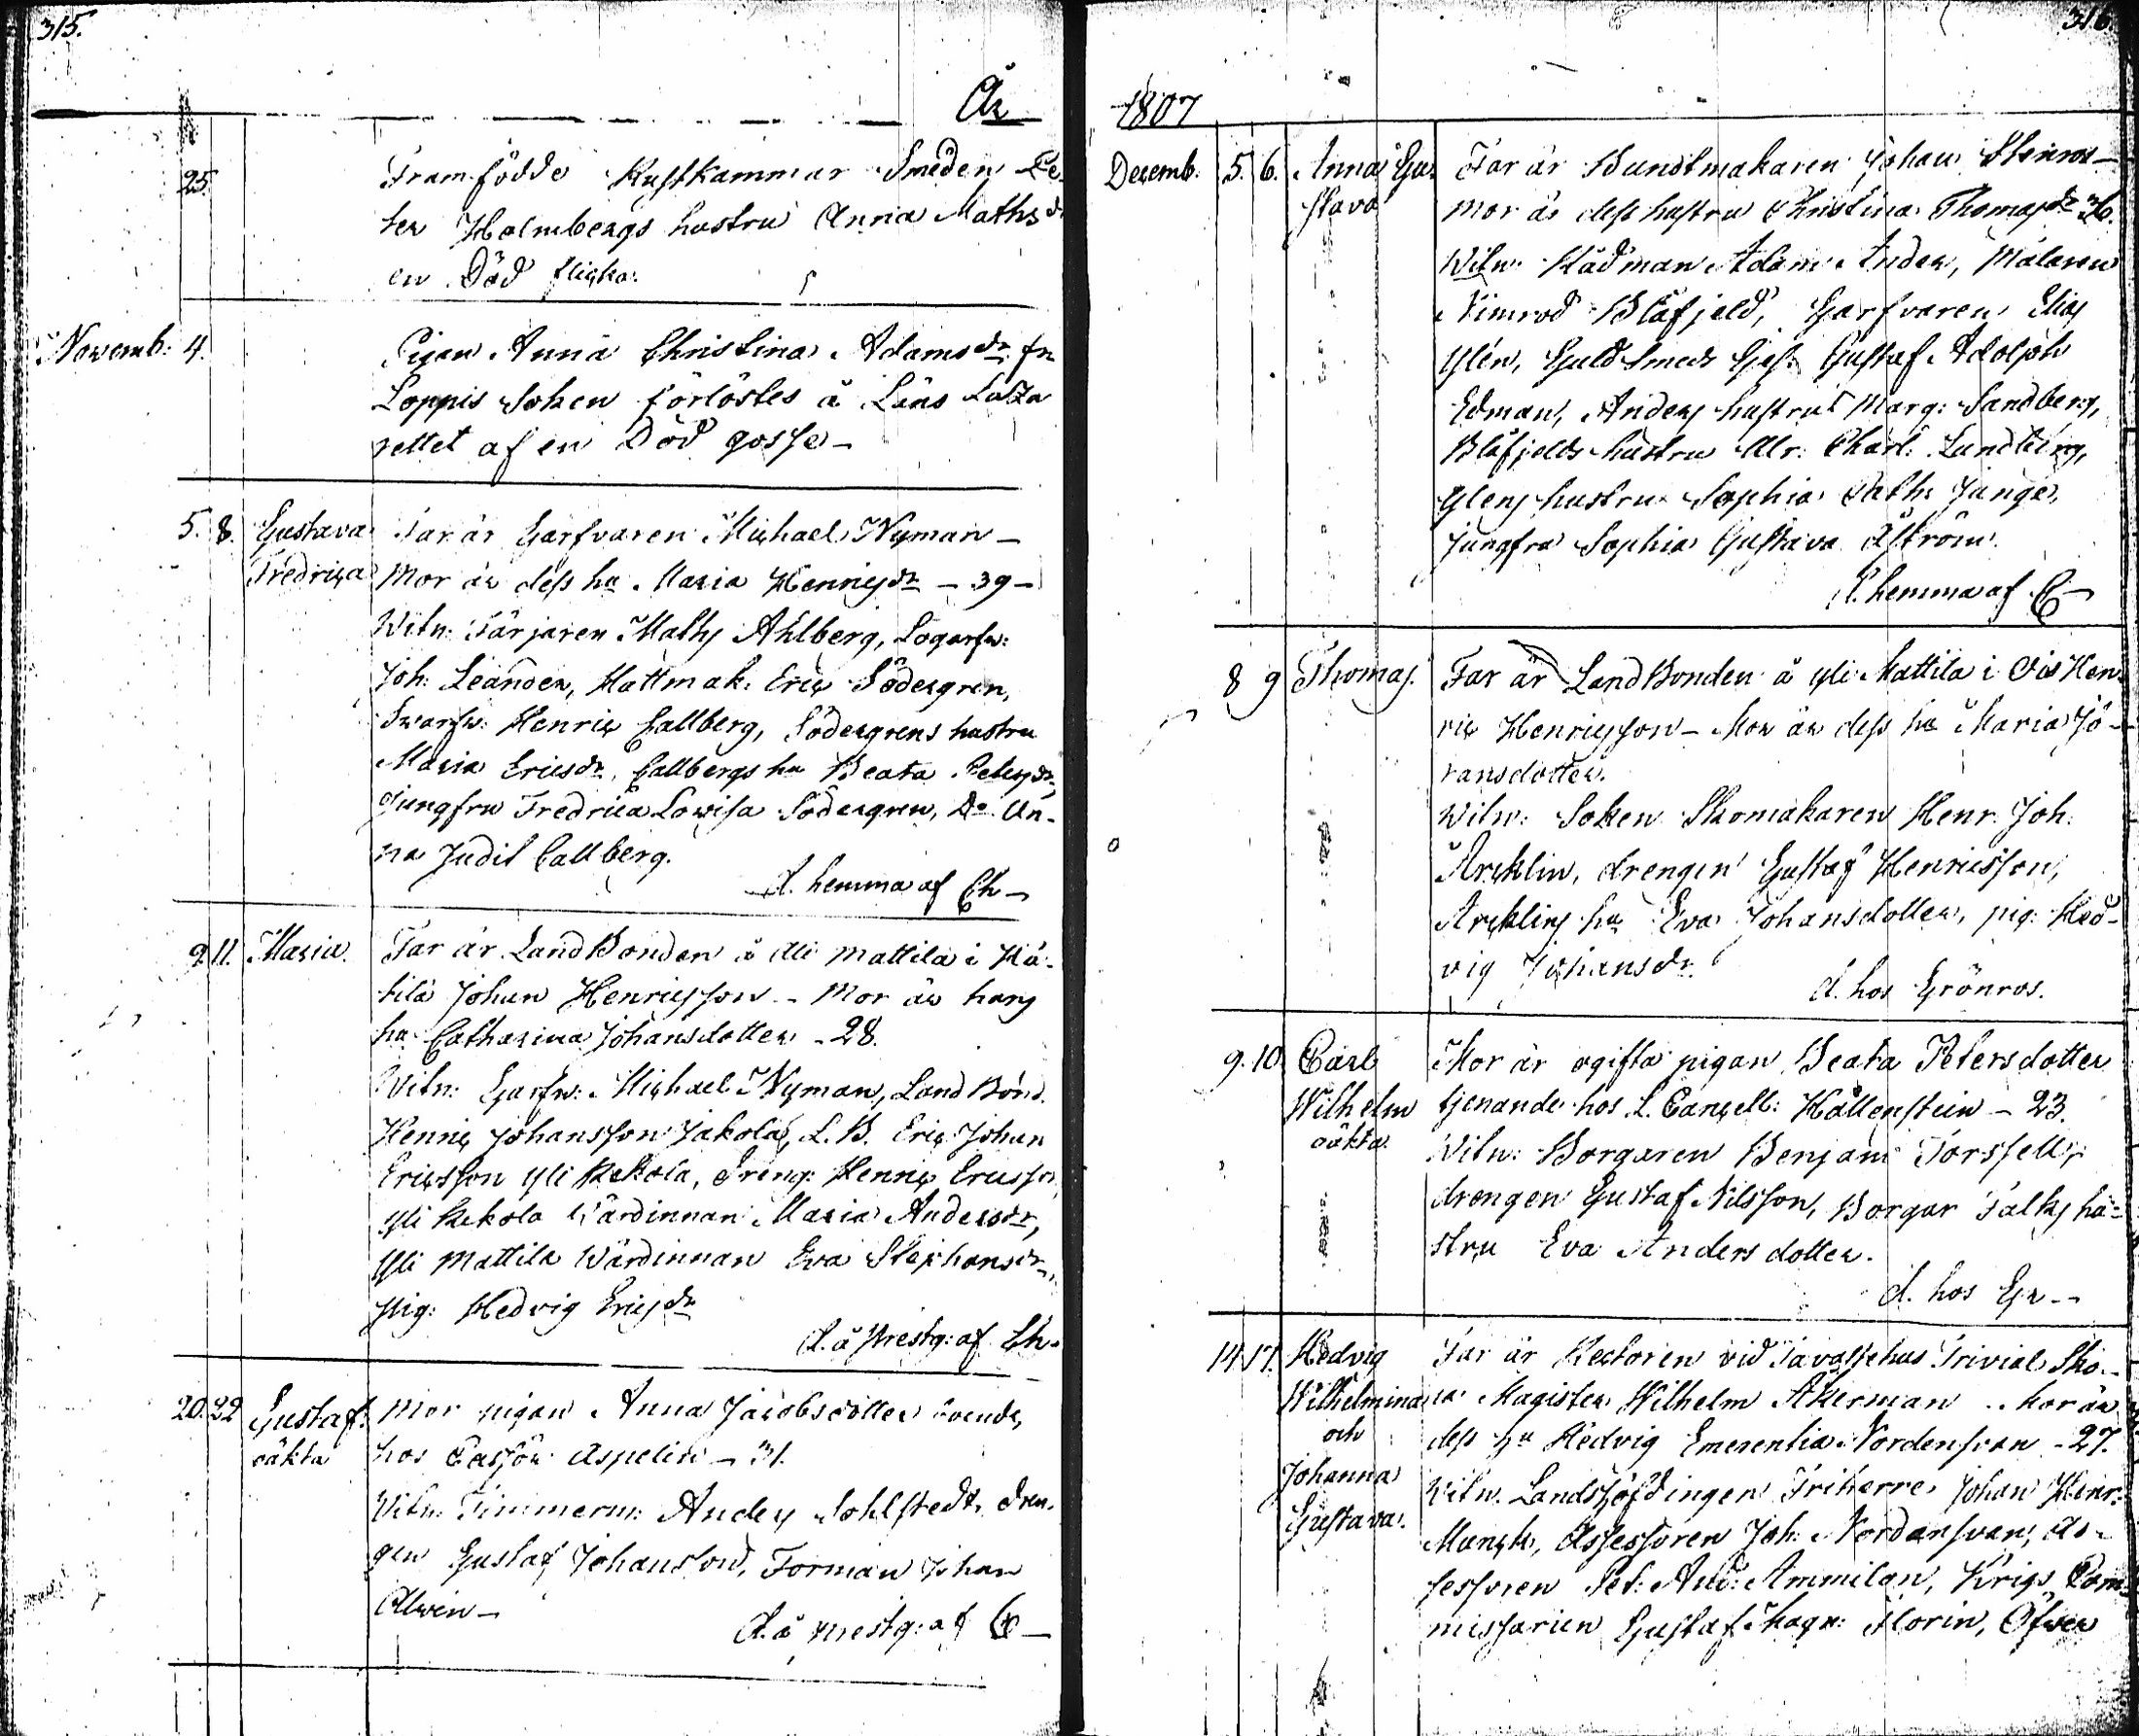 315.
År
25. Framfödde Rustkammar Smeden Pe-
ter Holmbergs hustru Anna Mathsdr
en Död flicka.
Novemb: 4. Pigan Anna Christina Adamsdr fr
Loppis Soken förlöstes å Läns Laza
rettet af en Död gosse –
5. 8. Gustava Far är Garfvaren Michael Nyman –
Fredrica Mor är dess hu Maria Henricsdr – 39 –
Witn: Färjaren Maths Ahlberg, Logarfw:
Joh: Leander, Hattmak: Eric Södergren,
Swarfw: Henric Callberg, Södergrens hustru
Maria Ericsdr, Callbergs hu Beata Petersdr,
Jungfru Fredrica Lovisa Södergren, Do An-
na Judit Callberg.
d. hemma af Ch –
9. 11. Maria. Far är LandBonden å Ali Mattila i Kä-
tilä Johan Henricsson – Mor är hans
hu Catharina Johansdotter – 28.
Witn: Garfw: Michael Nyman, Land Bond.
Henric Johansson Jakola, L. B. Eric Johan
Ericsson Yli Rekola, Dreng: Henric Ericsson
Yli Rekola Wärdinnan Maria Andersdr,
Yli Mattila Wärdinnan Eva Stephansdr,
Pig: Hedvig Ericsdr
d. å Prestg: af Ch.
20. 22 Gustaf. Mor pigan Anna Jacobsdotter
oäkta hos Aspelin – 31.
Witn: Timmerm: Anders Sohlstedt, dren-
gen Gustaf Johansson, Forman Johan
Alvin –
d. å Prestg: af C –
316.
1807
Decemb. 5. 6. Anna Gu- Far är Bundtmakaren Johan Stenros –
stava Mor är dess hustru Christina Thomasdr 36.
Witn: Rådman Adam Ander, Målaren
Nimrod Blåfjeld, Garfvaren Elias
Ylén, Guldsmeds Ges: Gustaf Adolph
Edman, Anders hustru Marg: Sandberg,
Blåfjelds hustru Ulr: Charl: Lundberg,
Ylens hustru Sophia Cath: Junge,
Jungfru Sophia Gustava Åström.
d. hemma af C –
8 9 Thomas. Far är LandBonden å Yli Mattila i Ois Hen-
ric Henricsson – Mor är dess hu Maria Jö-
ransdotter.
Witn: Soken Skomakaren Henr: Joh:
Arcklin, drengen Gustaf Henricsson,
Arcklins hu Eva Johansdotter, pig: Hed-
vig Johansdr
d. hos Grönros.
9. 10. Carl Mor är ogifta pigan Beata Petersdotter
Wilhelm tjenande hos L. Cancell: Hållenstein – 23.
oäkta. Witn: Borgaren Benjam: Forssell,
drengen Gustaf Nilsson, Borgar Falks hu-
stru Eva Anders dotter.
d. hos Gr –
14. 17. Hedvig Far är Rectoren vid Tavastehus Trivial Sko-
Wilhelmina la Magister Wilhelm Åkerman – Mor är
och dess hu Hedvig Emerentia Nordensvan – 27.
Johanna Witn. Landshöfdingen Friherre Johan Henr:
Gustava. Munck, Assessoren Joh: Nordensvan, As-
sessoren Pet: And: Ammilon, Krigs Com-
missarien Gustaf Magn: Florin, Öfver